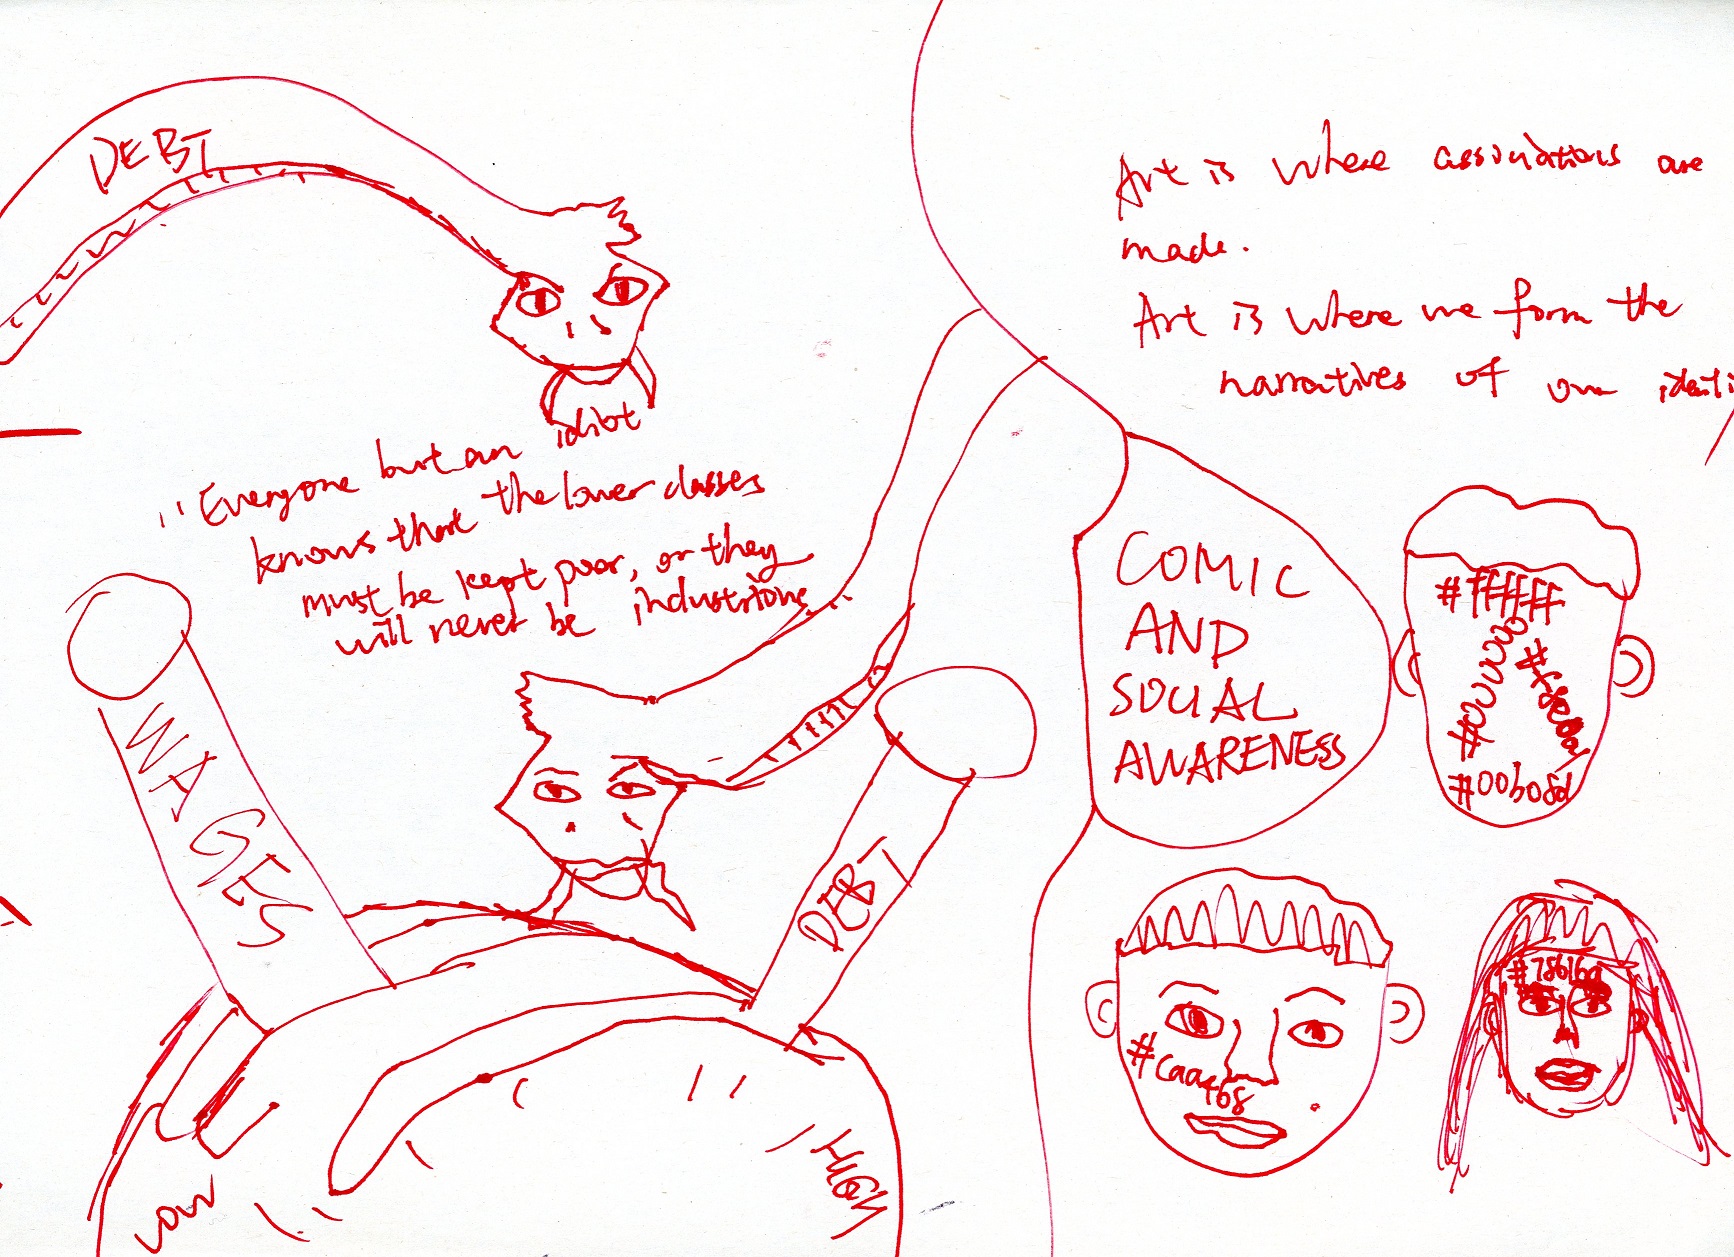 DEBT
"Everyone but an idiot
knows that the lower classes
must be kept poor, or they
will never be industrious
WAGES
DEBT
LOW
HIGH
Art is where associations are
made.
Art is where we form the
narratives of our identi
COMIC
AND
SOCIAL
AWARENESS
#ffffff
#000000
#00b08d
#caa468